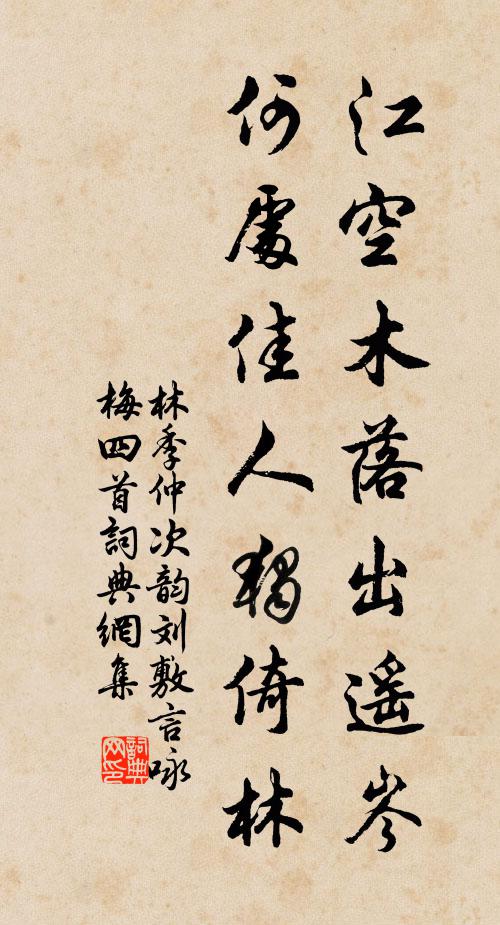 江空木落出遥岑
何處佳人獨倚林
林季仲次韵刘敷言咏
梅四首詞典網集
詞典
网印